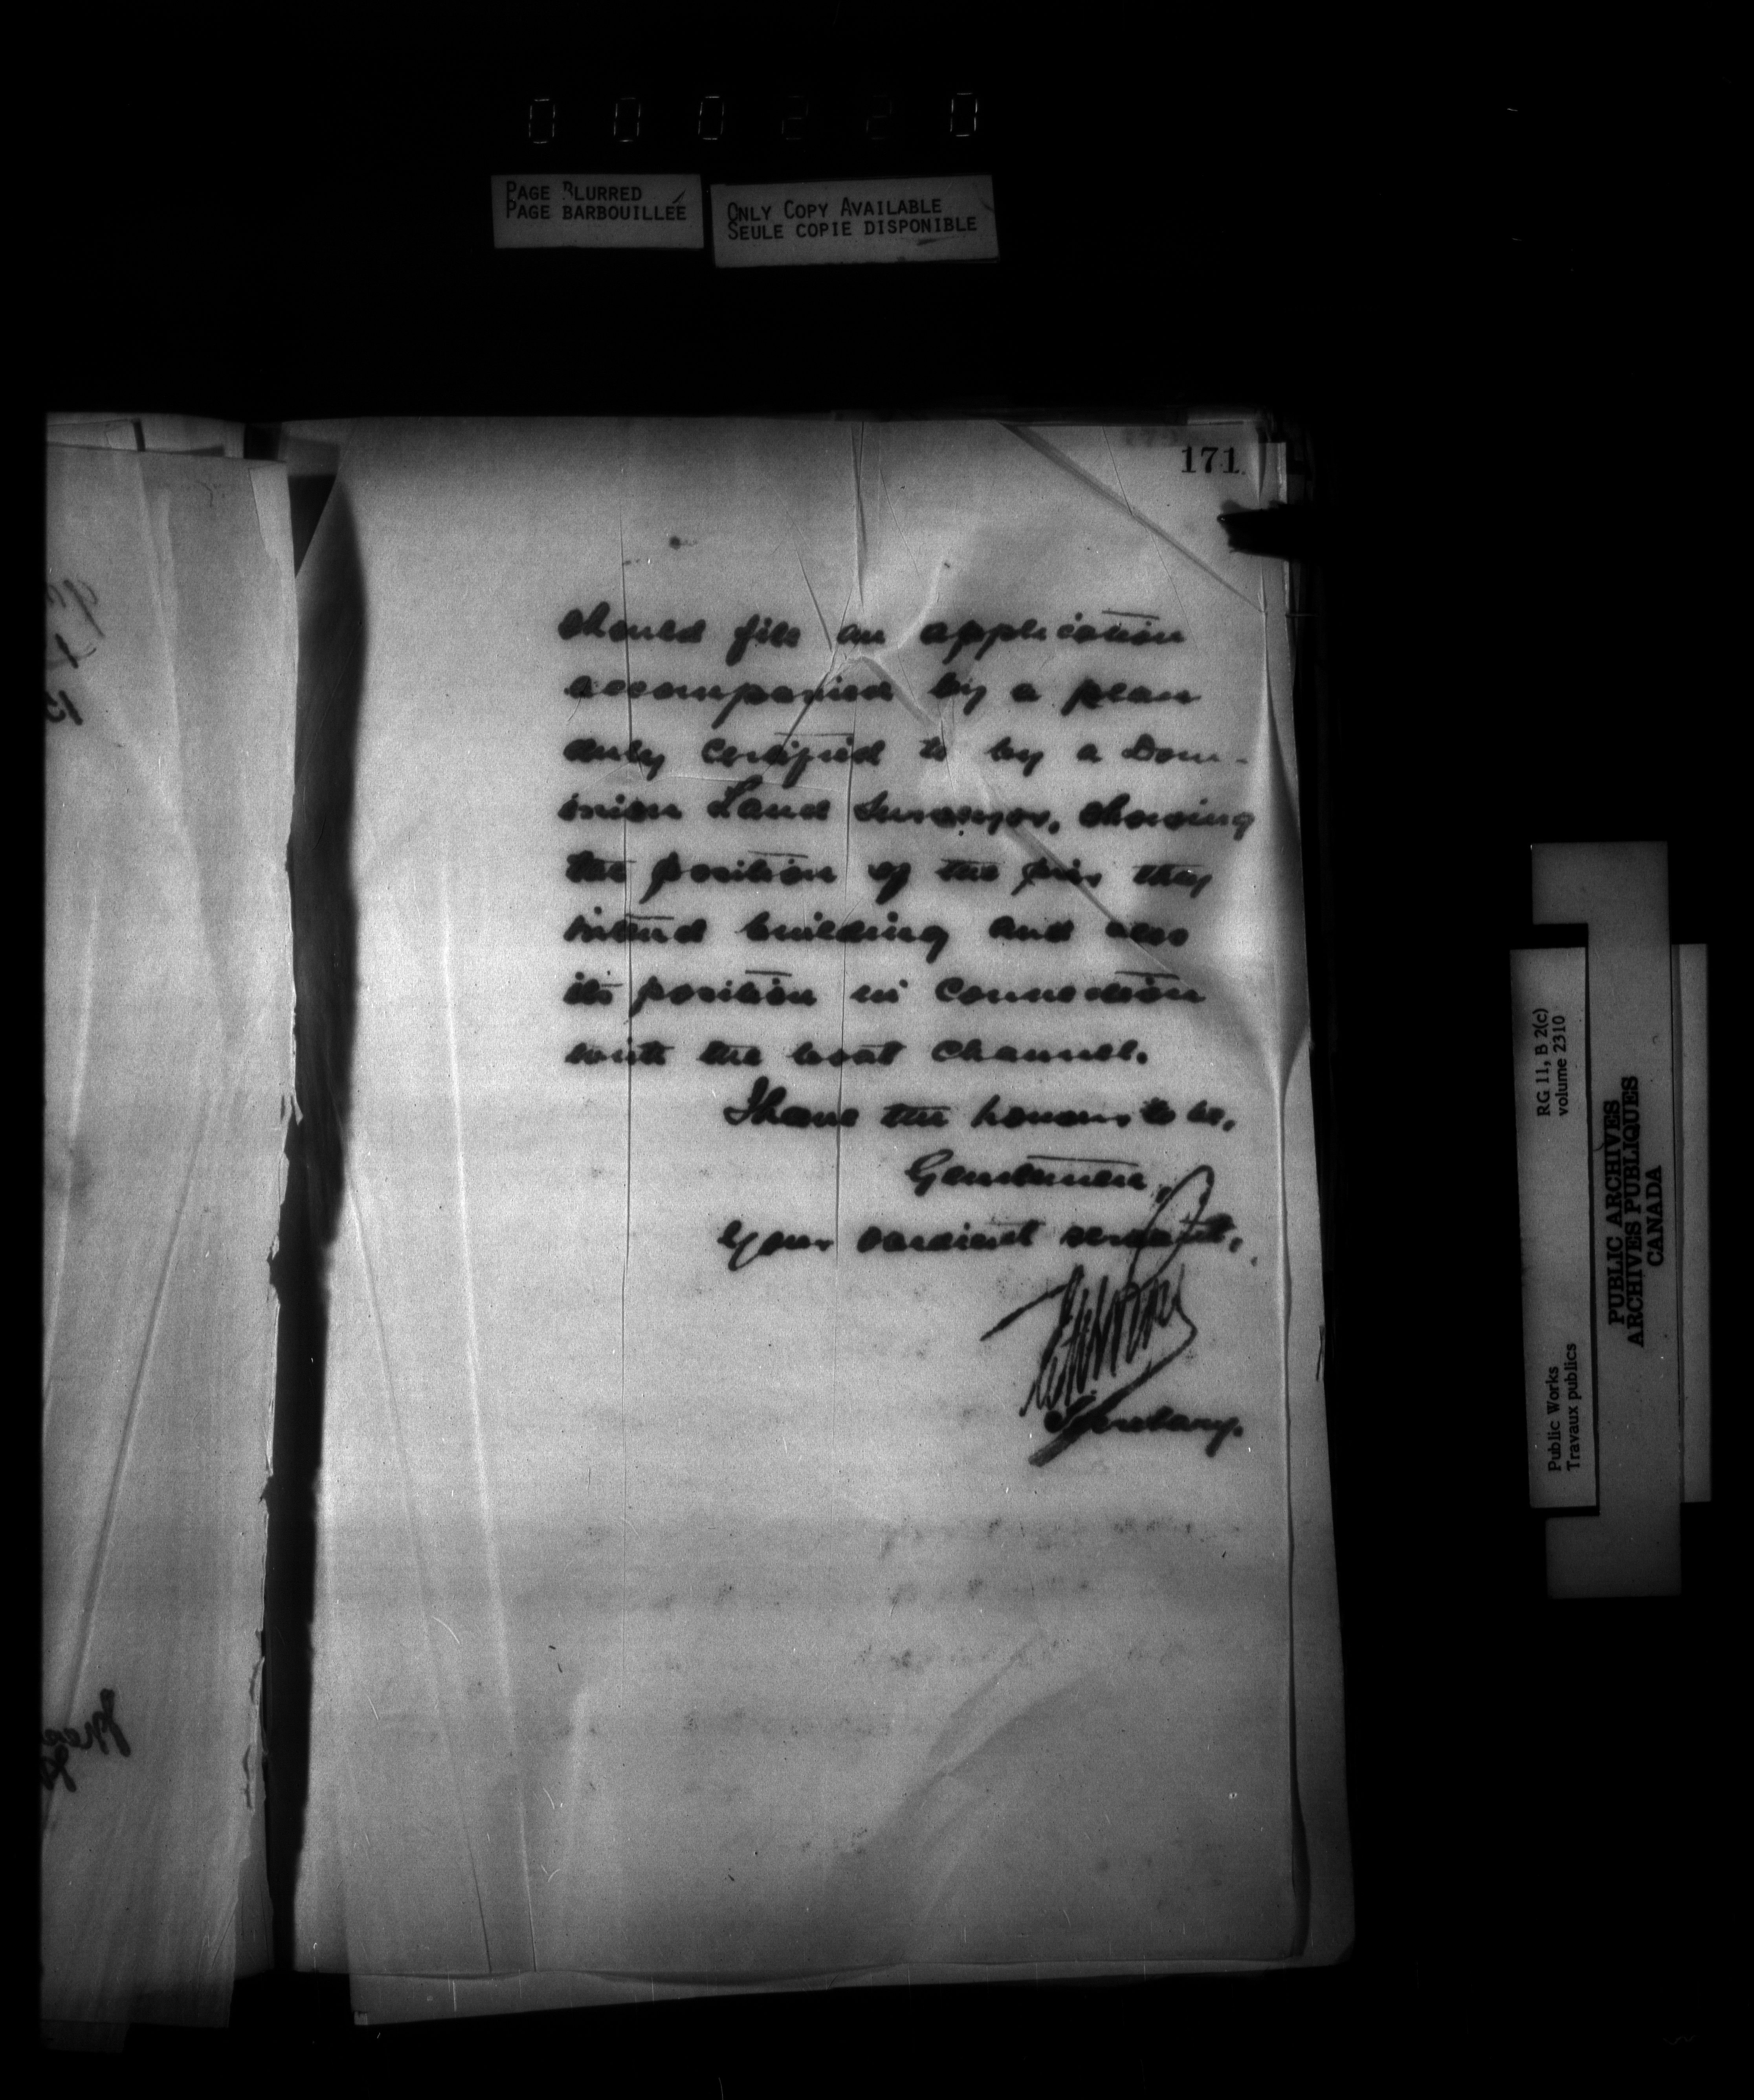 0 0 0 2 2 0
PAGE BLURRED
PAGE BARBOUILLÉE
ONLY COPY AVAILABLE
SEULE COPIE DISPONIBLE
171.
should file an application
accompanied by a plan
duly certified to by a Dom-
inion Land Surveyor, showing
the position of the pier they
intend building and also
its position in connection
with the boat channel.
I have the honour to be,
Gentlemen,
Your obedient servant,
Secretary.
RG 11, B 2(c)
volume 2310
Public Works
Travaux publics
PUBLIC ARCHIVES
ARCHIVES PUBLIQUES
CANADA